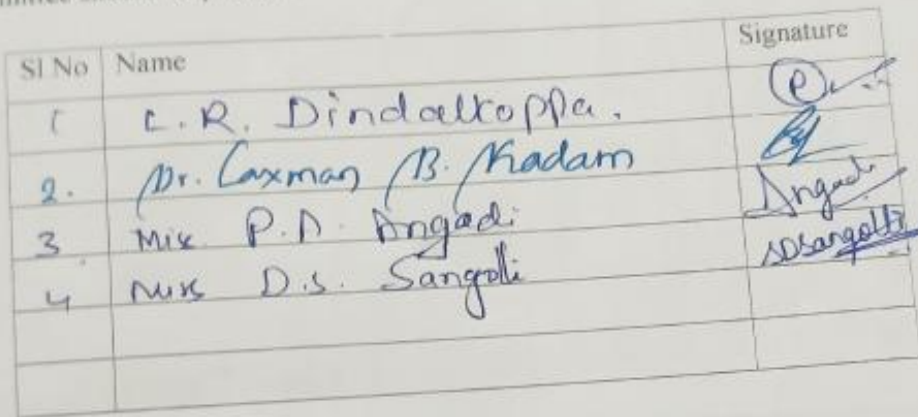 Sl No Name Signature
1 C. R. Dindalkoppa. P
2. Dr. Laxman B. Kadam
3 Miss P.A. Angadi Angadi
4 Mrs D.S. Sangolli SDSangolli